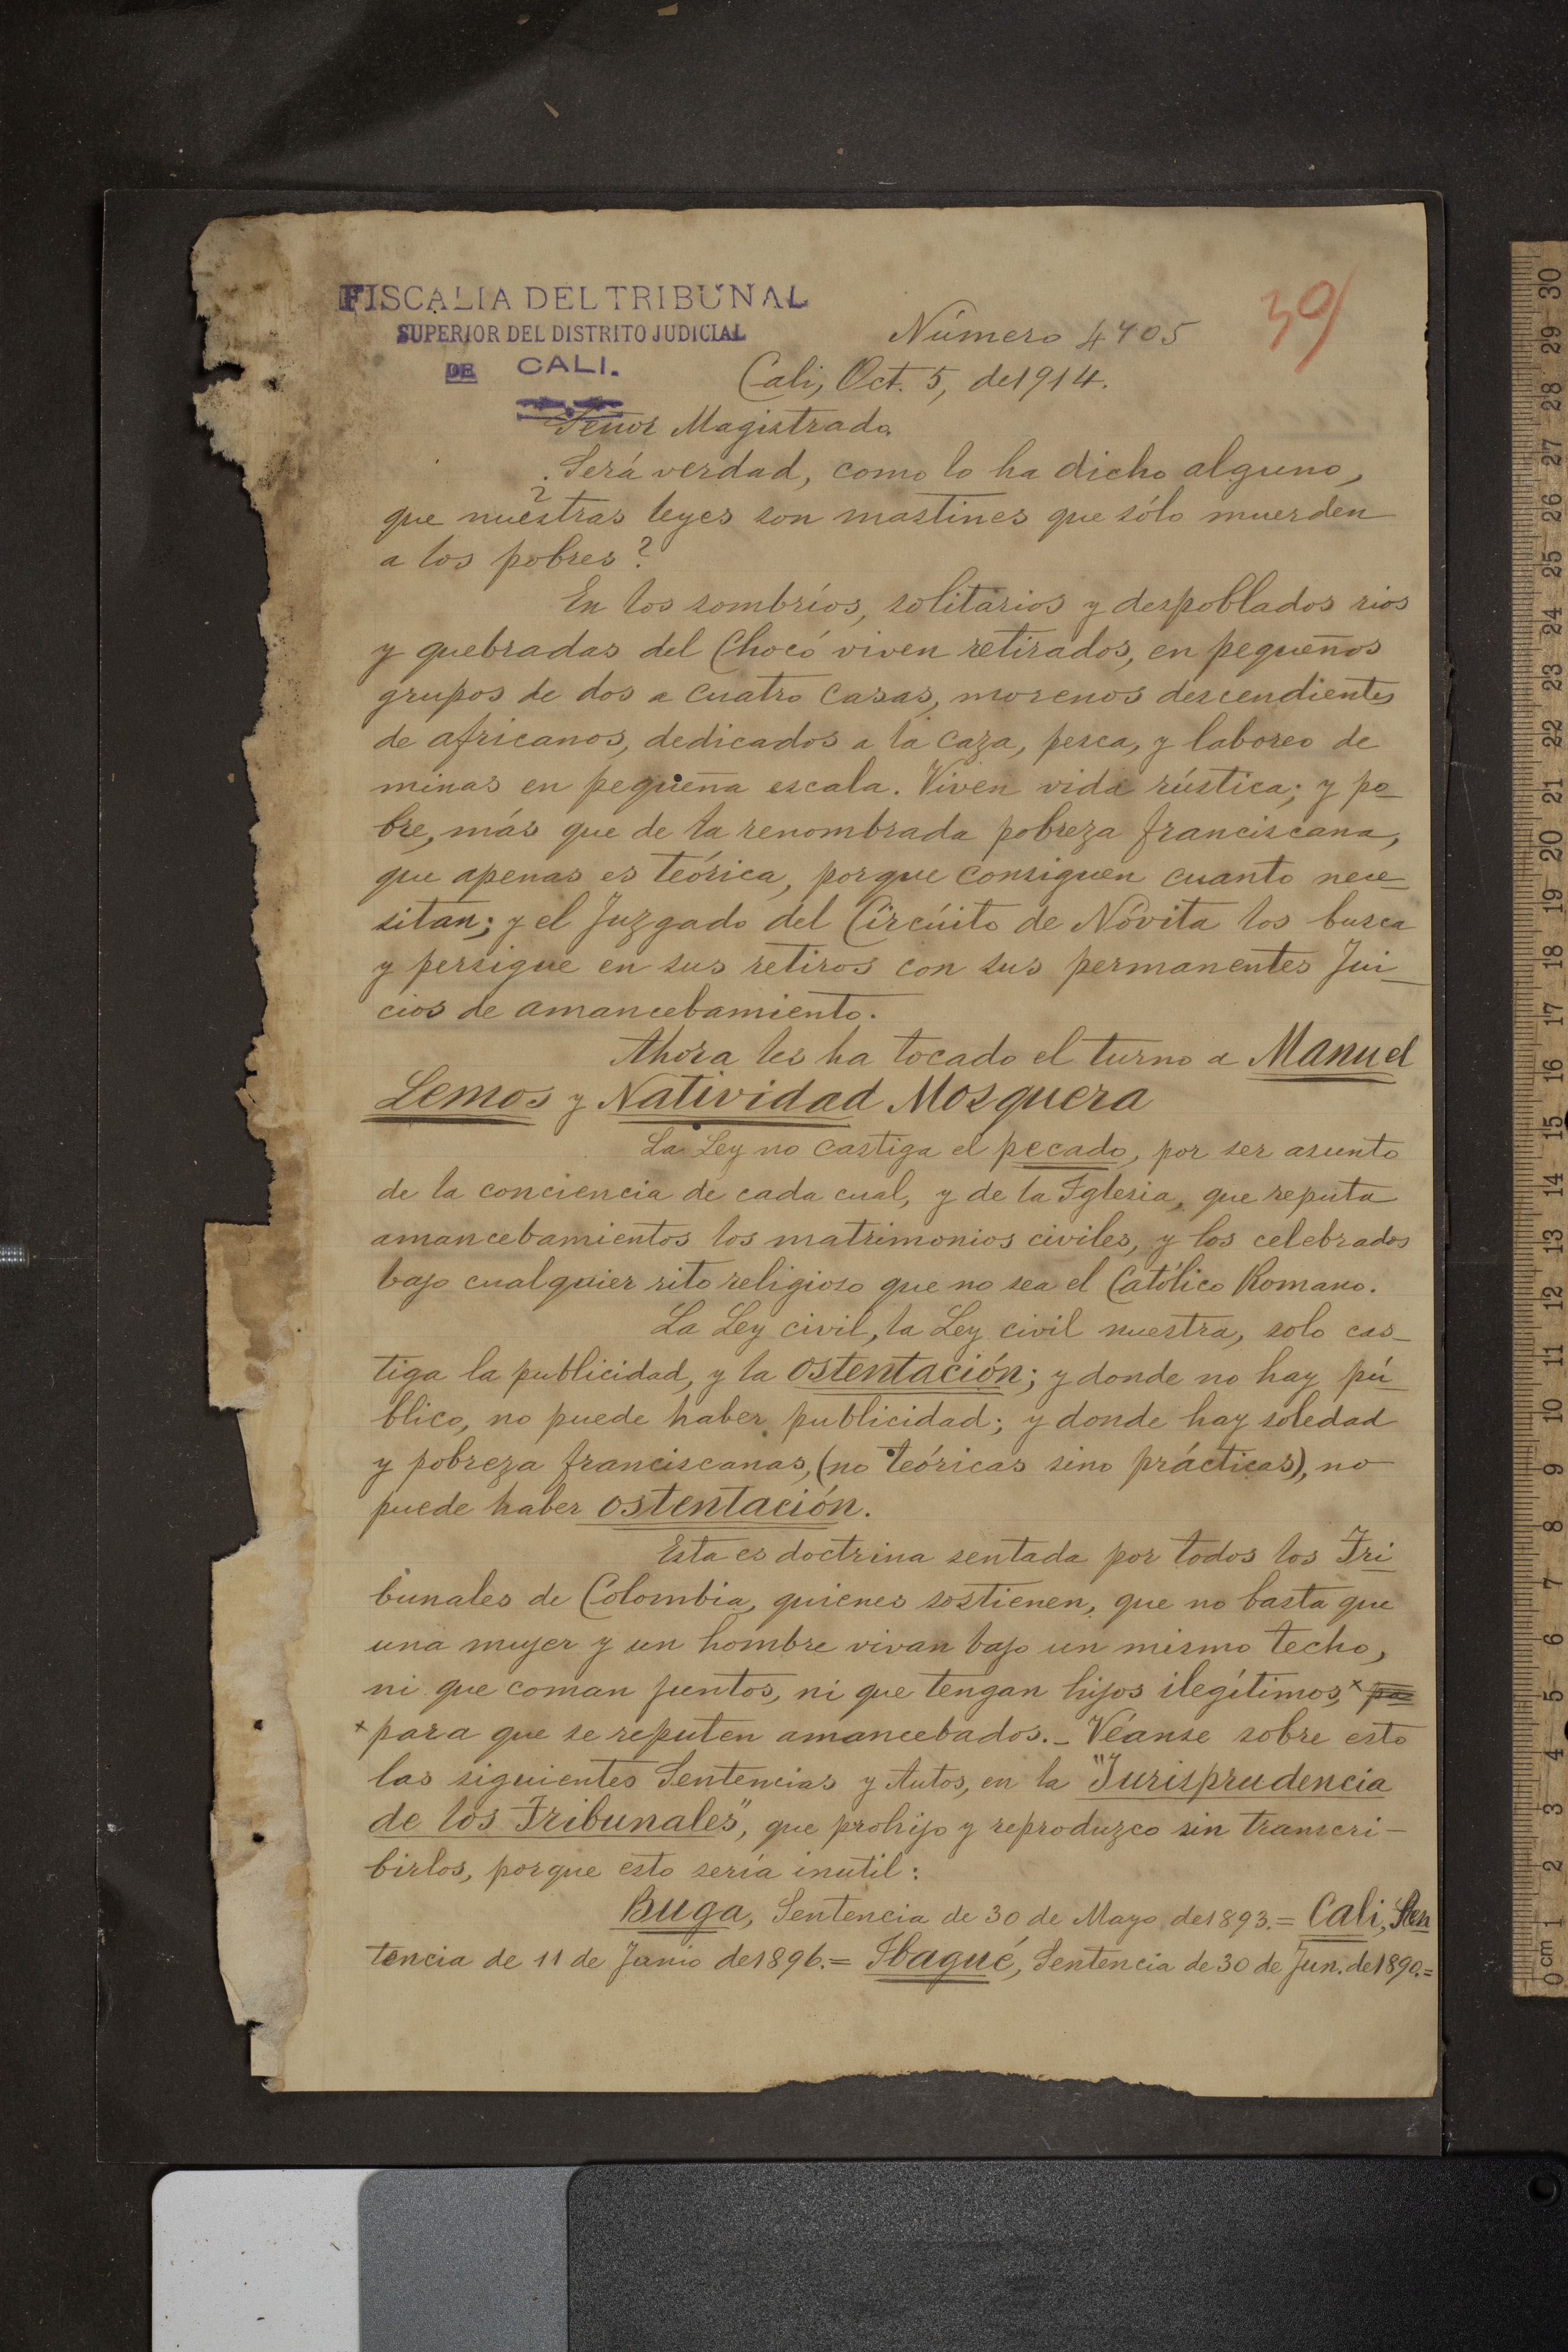 FISCALIA DEL TRIBUNAL
SUPERIOR DEL DISTRITO JUDICIAL
DE CALI.
39
Número 4405
Cali, Oct. 5, de 1914.
Señor Magistrado.
¿Será verdad, como lo ha dicho alguno,
que nuestras leyes son mastines que sólo muerden
a los pobres?
En los sombríos, solitarios y despoblados rios
y quebradas del Chocó viven retirados, en pequeños
grupos de dos a cuatro casas, morenos descendientes
de africanos, dedicados a la caza, pesca, y laboreo de
minas en pequeña escala. Viven vida rústica; y po-
bre, más que de la renombrada pobreza franciscana,
que apenas es teórica, porque consiguen cuanto nece-
sitan; y el Juzgado del Circúito de Nóvita los busca
y persigue en sus retiros con sus permanentes Jui-
cios de amancebamiento.
Ahora les ha tocado el turno a Manuel
Lemos y Natividad Mosquera
La Ley no castiga el pecado, por ser asunto
de la conciencia de cada cual, y de la Iglesia, que reputa
amancebamientos los matrimonios civiles, y los celebrados
bajo cualquier rito religioso que no sea el Católico Romano.
La Ley civil, la Ley civil nuestra, solo cas-
tiga la publicidad, y la ostentación; y donde no hay pú-
blico, no puede haber publicidad; y donde hay soledad
y pobreza franciscanas, (no teóricas sino prácticas), no
puede haber ostentación.
Esta es doctrina sentada por todos los Tri-
bunales de Colombia, quienes sostienen, que no basta que
una mujer y un hombre vivan bajo un mismo techo,
ni que coman juntos, ni que tengan hijos ilegítimos, x pa
x para que se reputen amancebados. - Véanse sobre esto
las siguientes Sentencias y Autos, en la "Jurisprudencia
de los Tribunales", que prohijo y reproduzco sin transcri-
birlos, porque esto sería inutil:
Buga, Sentencia de 30 de Mayo de 1893. = Cali, Sen
tencia de 11 de Junio de 1896. = Ibagué, Sentencia de 30 de Jun. de 1890. =